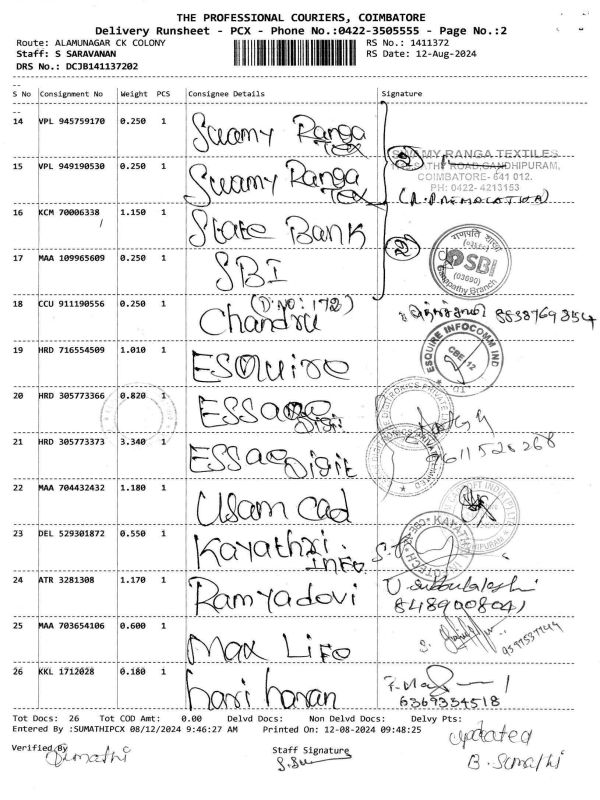 THE PROFESSIONAL COURIERS, COIMBATORE
Delivery Runsheet - PCX - Phone No.:0422-3505555 - Page No.:2
Route: ALAMUNAGAR CK COLONY RS No.: 1411372
Staff: S SARAVANAN RS Date: 12-Aug-2024
DRS No.: DCJB141137202
S No Consignment No Weight PCS Consignee Details Signature
14 VPL 945759170 0.250 1 Swamy Ranga Tex
15 VPL 949190530 0.250 1 Swamy Ranga Tex
RANGA TEXTILES
GANDHIPURAM,
COIMBATORE- 641 012.
PH: 0422- 4213153
(R. PREMALATHA)
16 KCM 70006338 1.150 1 State Bank
17 MAA 109965609 0.250 1 SBI
गणपति शाखा
SBI
(03690)
Branch
18 CCU 911190556 0.250 1 (D.NO: 172) Chandru
19 HRD 716554509 1.010 1 ESQuire
ESQUIRE INFOCOMM IND
CBE 12
20 HRD 305773366 0.820 1
21 HRD 305773373 3.340 1
9611528268
22 MAA 704432432 1.180 1 Usam Cad
23 DEL 529301872 0.550 1 Kayathri INFO
24 ATR 3281308 1.170 1 Ramyadevi
25 MAA 703654106 0.600 1 Max Life
26 KKL 1712028 0.180 1 hari haran
6369334518
Tot Docs: 26 Tot COD Amt: 0.00 Delvd Docs: Non Delvd Docs: Delvy Pts:
Entered By :SUMATHIPCX 08/12/2024 9:46:27 AM Printed On: 12-08-2024 09:48:25
updated
Verified By Staff Signature
Sumathi B. Sumathi